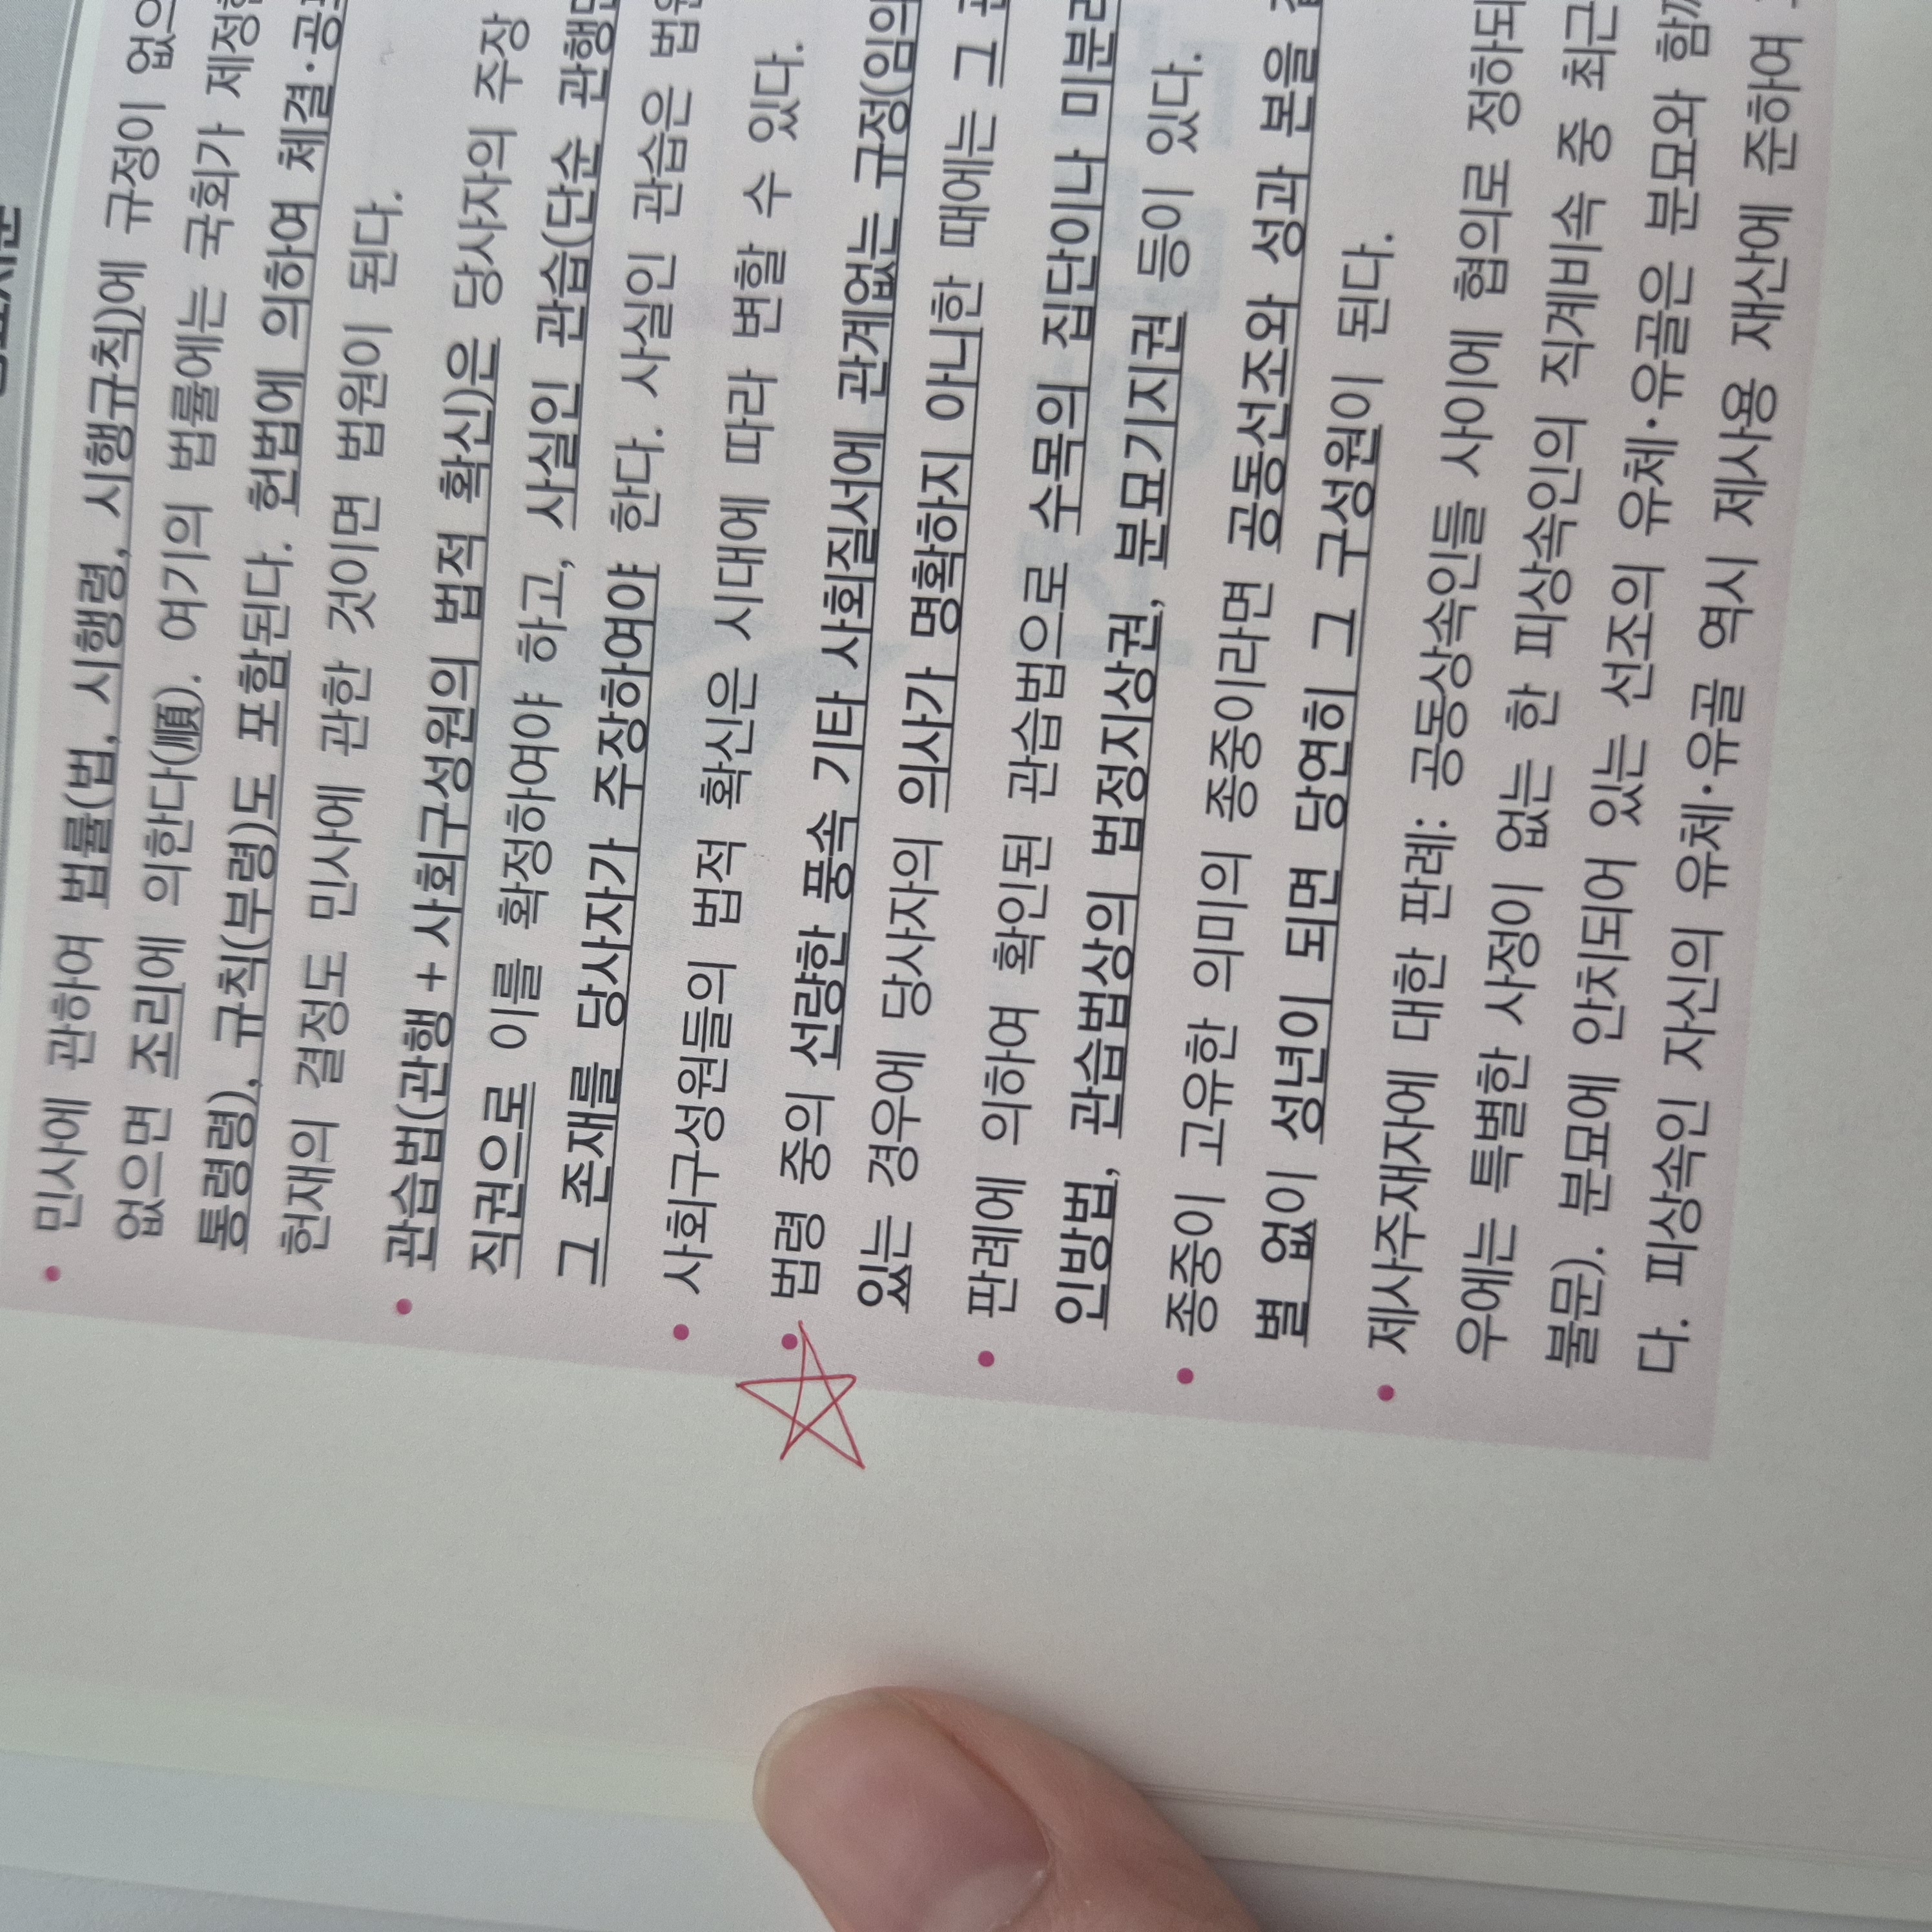 민사에 관하여 법률(법, 시행령, 시행규칙)에 규정이 없으
없으면 조리에 의한다(順). 여기의 법률에는 국회가 제정한
통령령), 규칙(부령)도 포함된다. 헌법에 의하여 체결·공포
헌재의 결정도 민사에 관한 것이면 법원이 된다.
관습법(관행 + 사회구성원의 법적 확신)은 당사자의 주장
직권으로 이를 확정하여야 하고, 사실인 관습(단순 관행만
그 존재를 당사자가 주장하여야 한다. 사실인 관습은 법원
사회구성원들의 법적 확신은 시대에 따라 변할 수 있다.
법령 중의 선량한 풍속 기타 사회질서에 관계없는 규정(임의
있는 경우에 당사자의 의사가 명확하지 아니한 때에는 그
판례에 의하여 확인된 관습법으로 수목의 집단이나 미분리
인방법, 관습법상의 법정지상권, 분묘기지권 등이 있다.
종중이 고유한 의미의 종중이라면 공동선조와 성과 본을
별 없이 성년이 되면 당연히 그 구성원이 된다.
제사주재자에 대한 판례: 공동상속인들 사이에 협의로 정하되
우에는 특별한 사정이 없는 한 피상속인의 직계비속 중 최근
불문). 분묘에 안치되어 있는 선조의 유체·유골은 분묘와 함께
다. 피상속인 자신의 유체·유골 역시 제사용 재산에 준하여